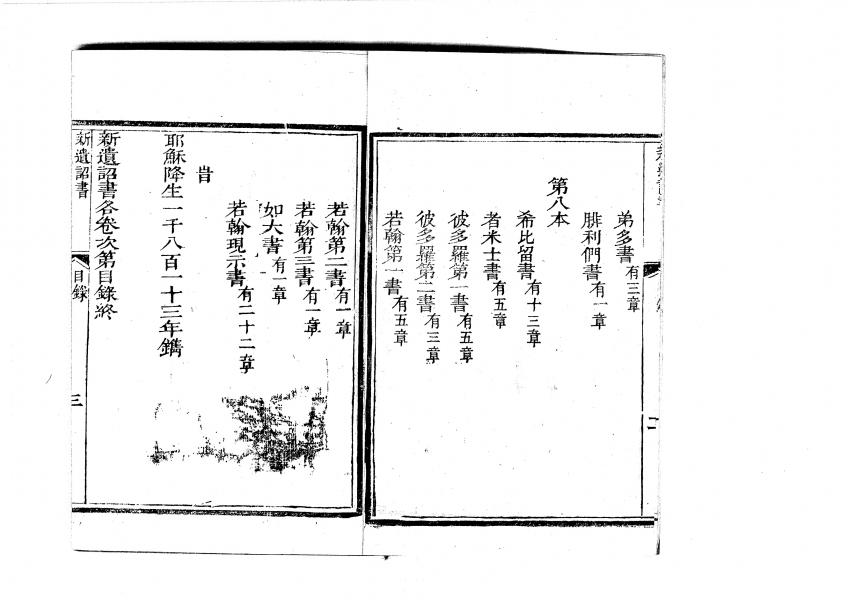 弟多書有三章
腓利們書有一章
第八本
希比留書有十三章
者米士書有五章
彼多羅第一書有五章
彼多羅第二書有三章
若翰第一書有五章
若翰第二書有一章
若翰第三書有一章
如大書有一章
若翰現示書有二十二章
旹
耶穌降生一千八百一十三年鐫
新遺詔書各卷次第目錄終
新遺詔書
目錄
三